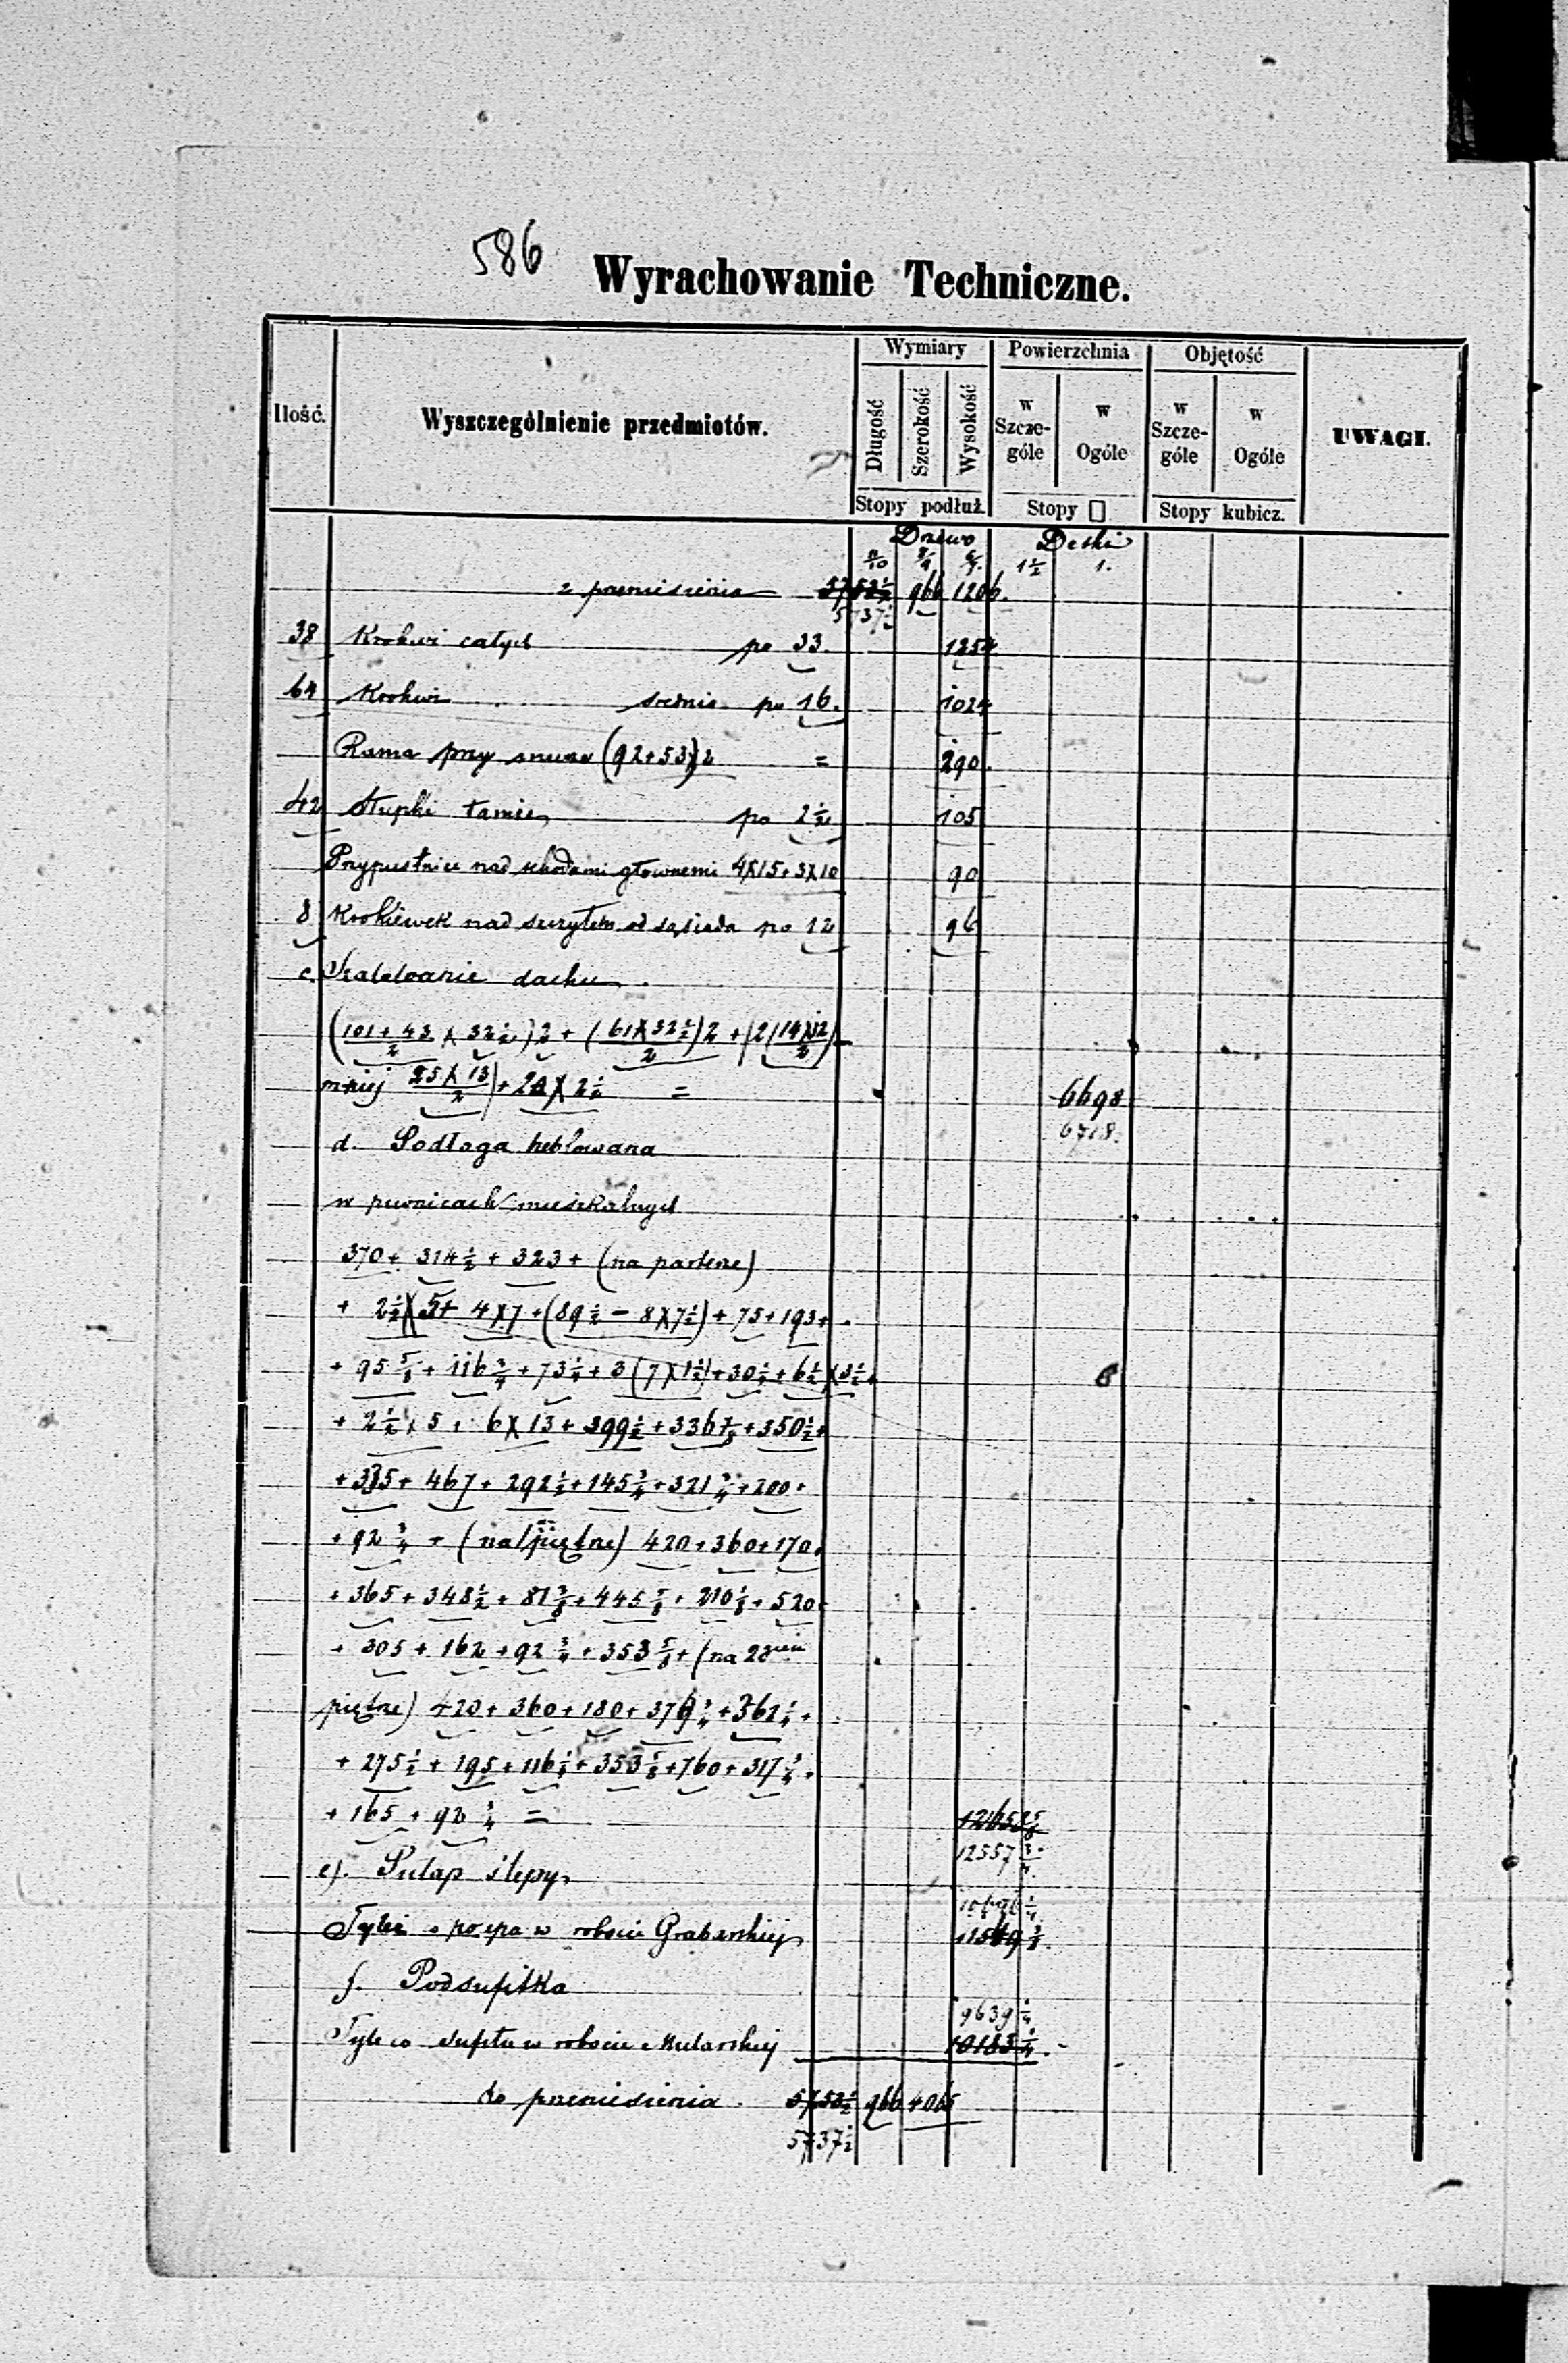 586
Wyrachowanie Techniczne.
Ilość. Wyszczególnienie przedmiotów. Wymiary Powierzchnia Objętość UWAGI.
Długość Szerokość Wysokość w Szcze-góle w Ogóle w Szcze-góle w Ogóle
Stopy podłuż. Stopy □. Stopy kubicz.
Drzewo Deski
1½ 1.
z przeniesienia 5752½ 966 1206.
5737½
38 Krokwi całych po 33. 1254
64 Krokwi średnio po 16. 1024
Rama przy murze (92+53)2 = 290.
42 Słupki tamże po 2½ 105
Przypustnice nad schodami głownemi 4X15+3X10 90
8 Krokiewek nad szczytem od sąsiada po 12 96
c. Szalowanie dachu.
(101+43/2 X 32½)2 + (61X32½/2)2 + (2(14X12/2)
mniej 25X13/2)+20X2½ = 6698
6718.
d. Podłoga heblowana
w piwnicach mieszkalnych
370+ 314½ + 323+ (na parterze)
+ 2½X5+ 4X7+(89½ – 8X7½)+75+193+
+ 95⅝+116¾+73¼+3(7X1½)+30½+6½X3½+
+ 2½X5+ 6X13+399½+336⅞+350½+
+335+ 467+ 292½+145¾+321¾+200+
+92¾ + (na I piętrze) 420+360+170+
+365+348½+81⅜+445⅝+210⅛+520+
+ 305+162+92¾+353⅝+(na 2giem
piętrze) 420+360+180+379¾+362¼+
+275½+195+116¼+353⅝+760+317¾+
+165+92¾ = 12653⅝
12557¾
e). Pułap ślepy
10696¼
Tyle co posypa w robocie Grabarskiej 11549⅜.
f. Podsufitka
9639¼
Tyle co sufitu w robocie Mularskiej 10183¼.
do przeniesienia. 5752½ 966 4065
5737½